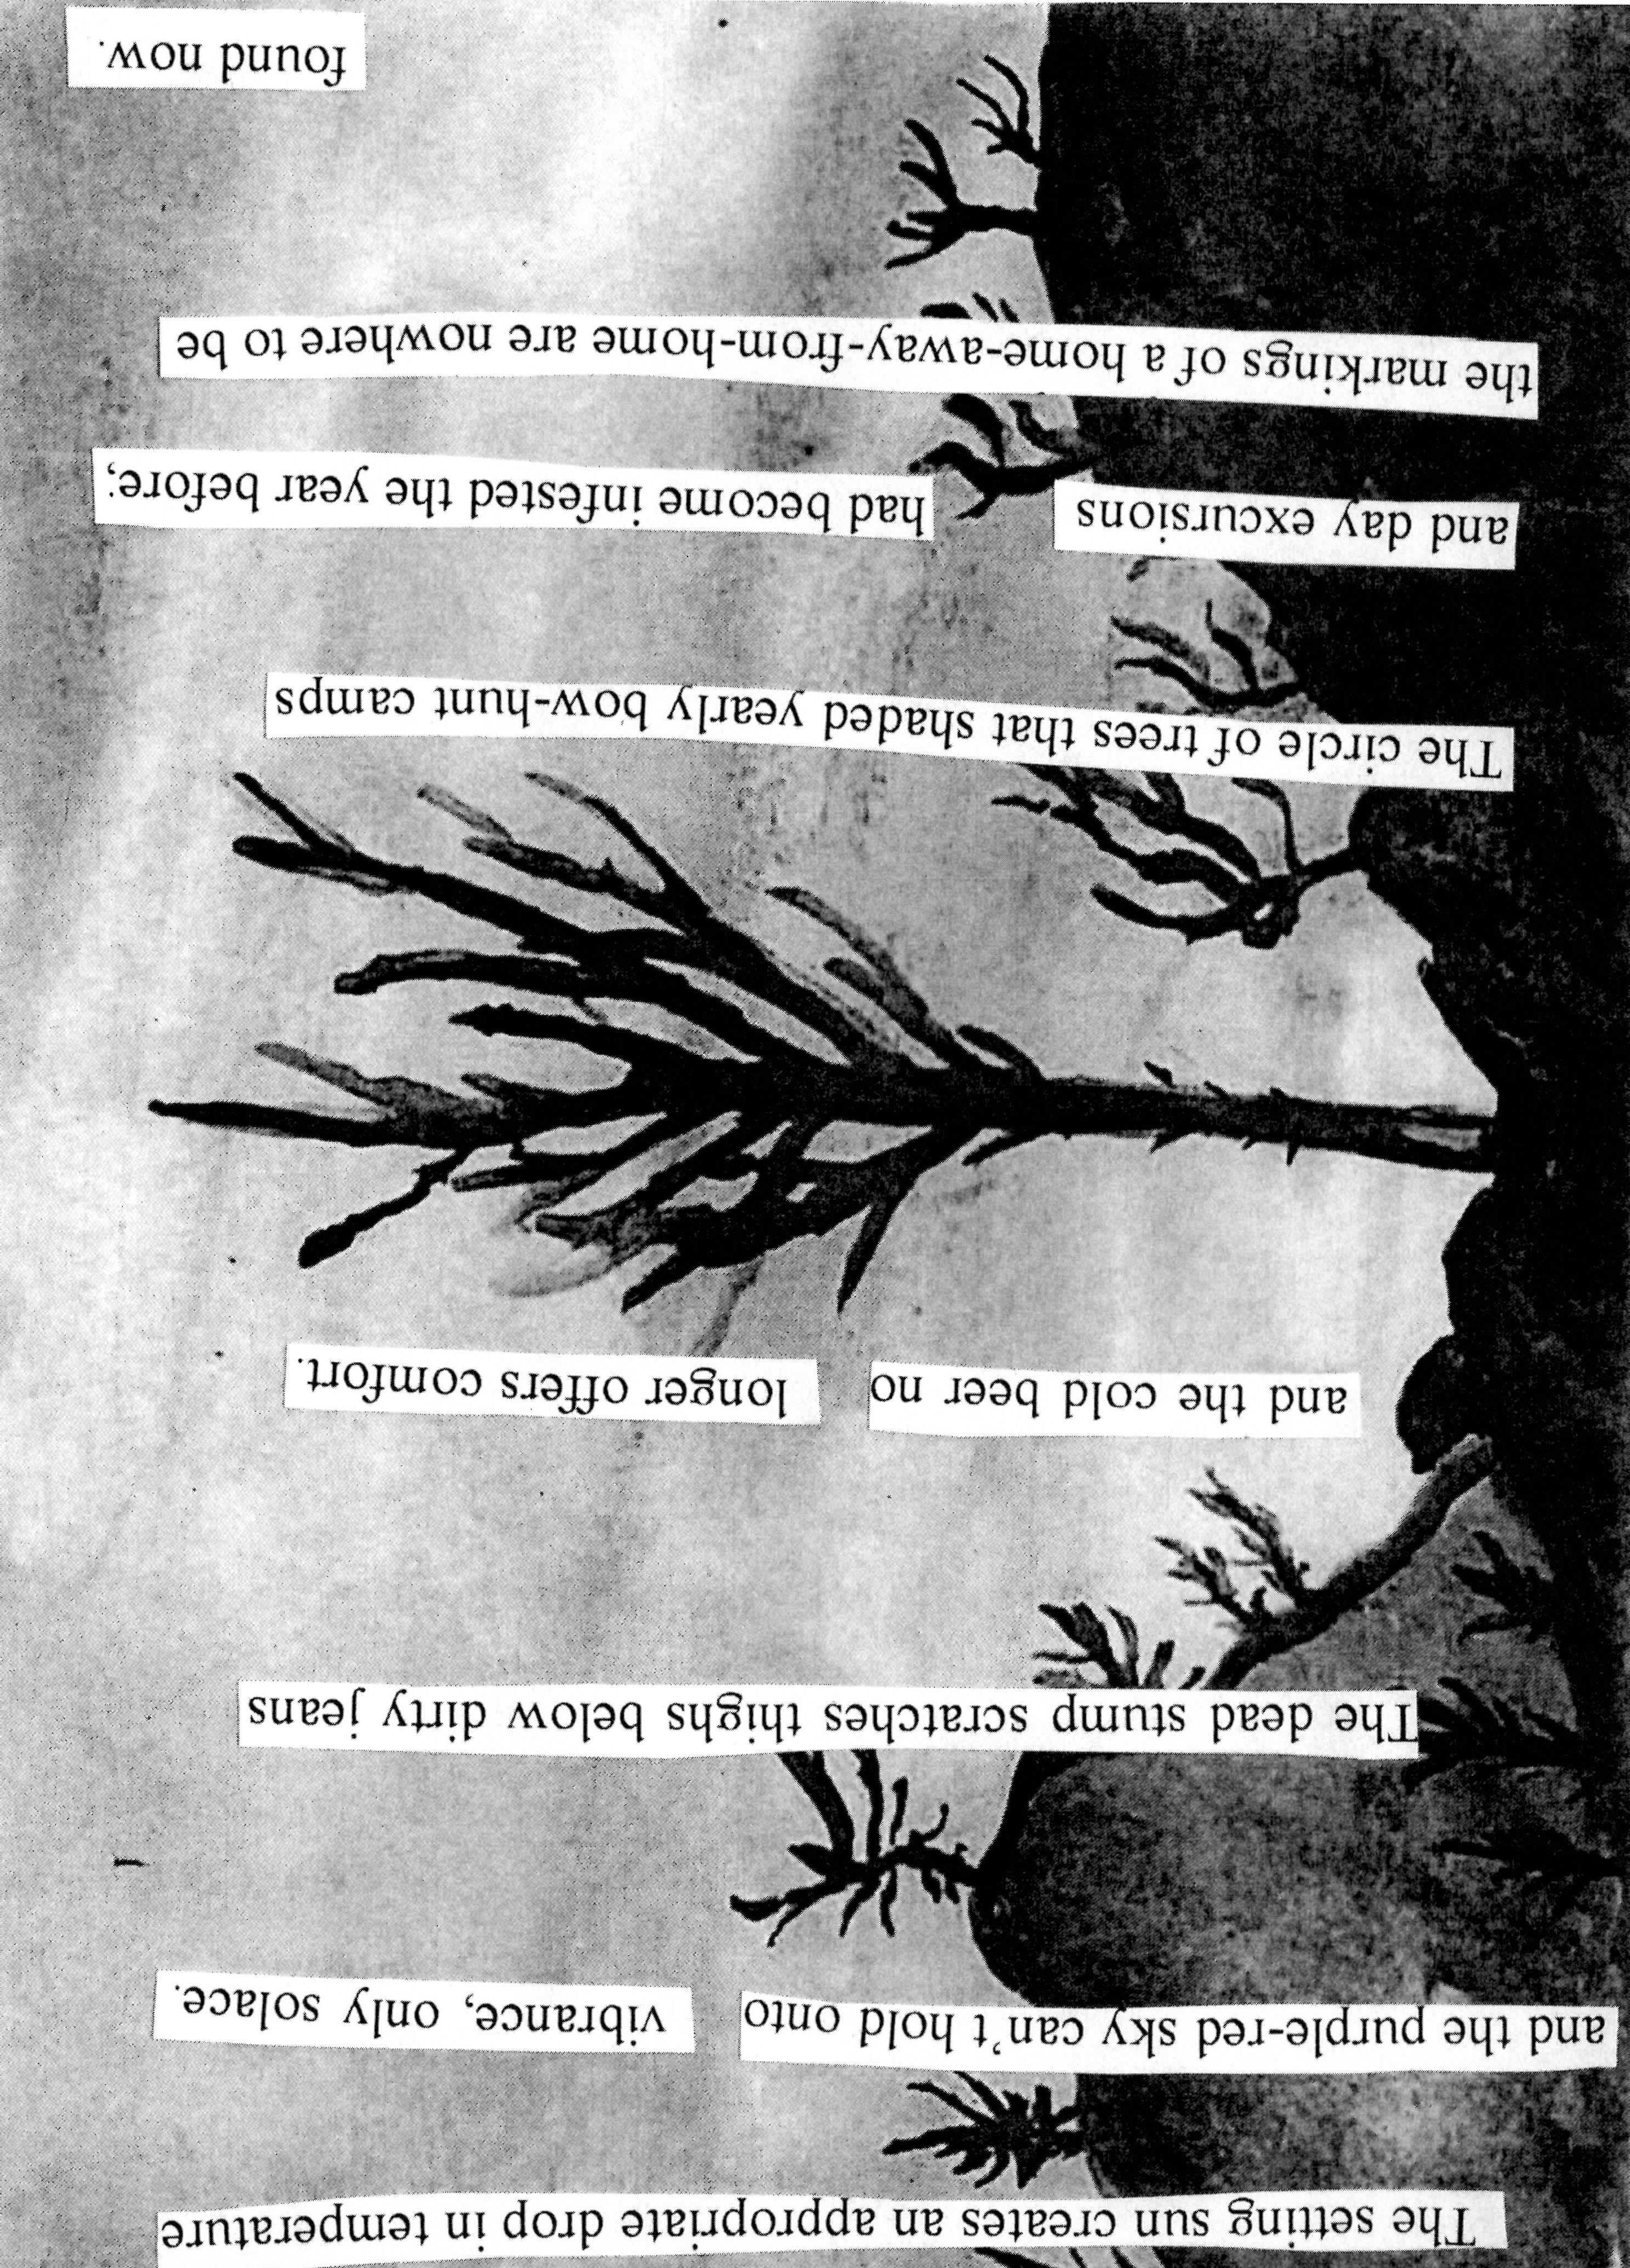 The setting sun creates an appropriate drop in temperature
and the purple-red sky can't hold onto vibrance, only solace.
The dead stump scratches thighs below dirty jeans
and the cold beer no longer offers comfort.
The circle of trees that shaded yearly bow-hunt camps
and day excursions had become infested the year before;
the markings of a home-away-from-home are nowhere to be
found now.